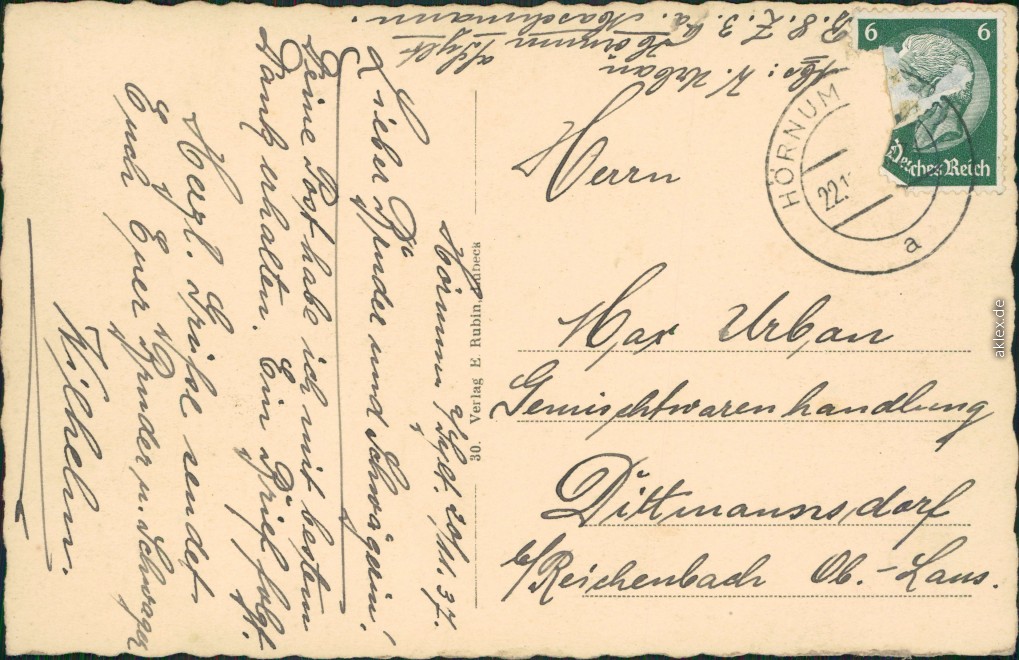 Hörnum / Sylt. 21/11. 37.
Lieber Bruder und Schwägerin!
Deine Post habe ich mit bestem
Dank erhalten. Ein Brief folgt.
Herzl. Grüße sendet
Euch Euer Bruder u. Schwager
Wilhelm.
30. Verlag E. Rubin, Lübeck
Abs: W. Urban
Hörnum / Sylt
a. Maschmann.
6 6
Deutsches Reich
HÖRNUM
22.1
a
Herrn
Max Urban
Gemischtwarenhandlung
Dittmannsdorf
b/Reichenbach Ob.-Laus.
aklex.de